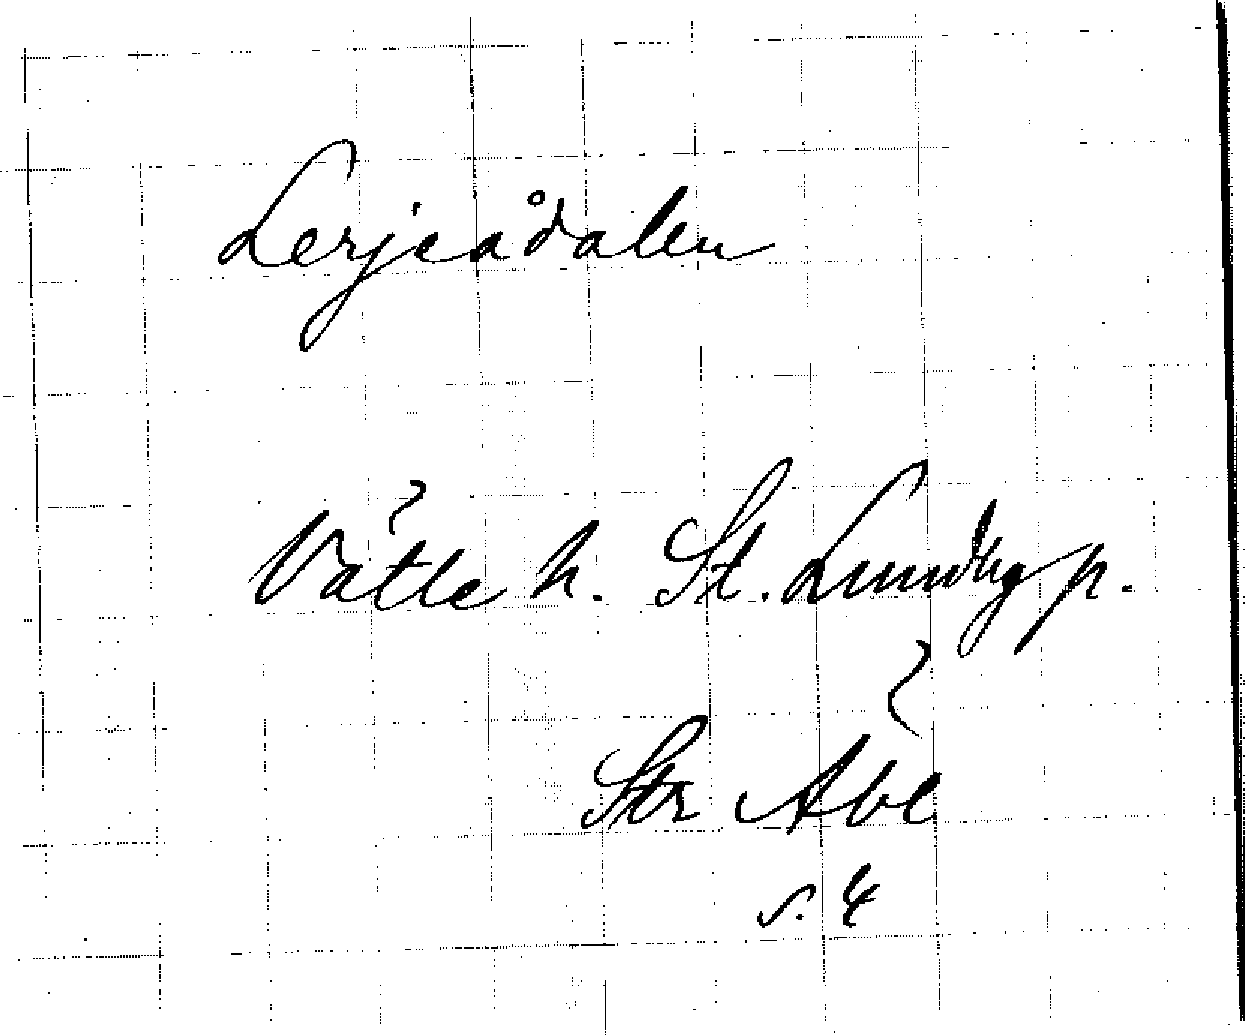 Lerjeådalen
Vätle h. St. Lundby p.
Str Abl
s. 4